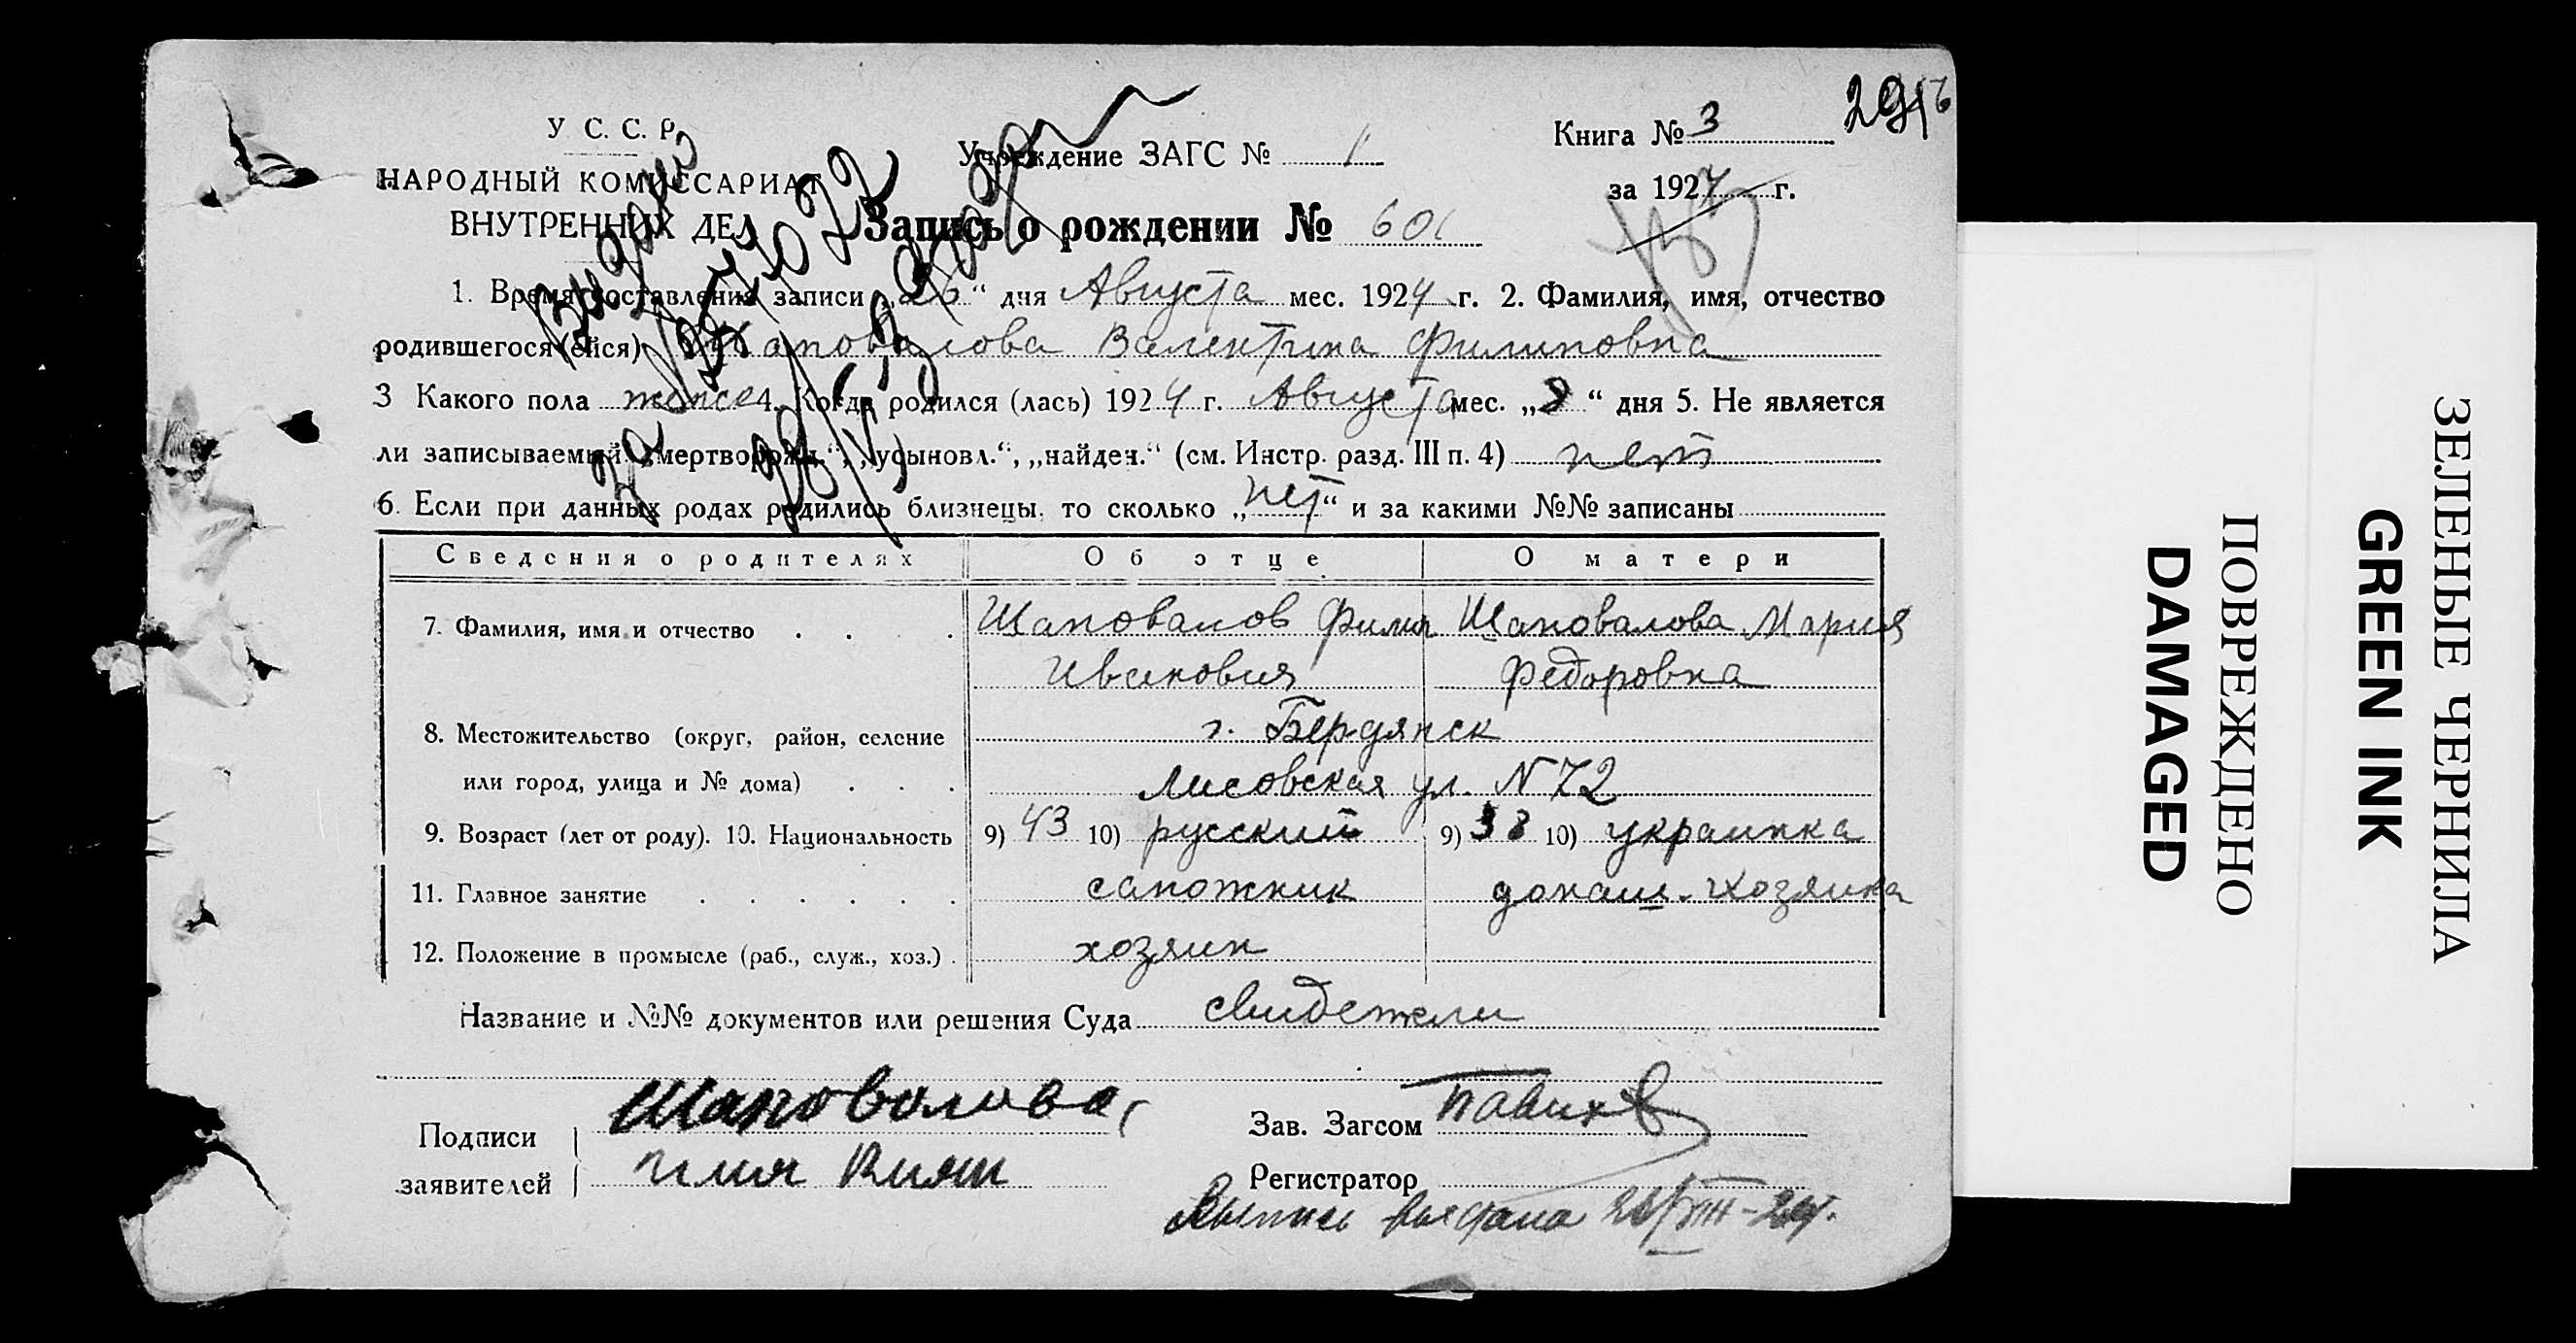 У С. С. Р.
НАРОДНЫЙ КОМИССАРИАТ
ВНУТРЕННИХ ДЕЛ
Учреждение ЗАГС № 1
Книга № 3
за 1924 г.
Запись о рождении № 601
1. Время составления записи „26“ дня Августа мес. 1924 г. 2. Фамилия, имя, отчество
родившегося (ейся) Шаповалова Валентина Филиповна
3 Какого пола женск 4. Когда родился (лась) 1924 г. Августа мес. „8“ дня 5. Не является
ли записываемый „мертворожд.“, „усыновл.“, „найден.“ (см. Инстр. разд. III п. 4) нет
6. Если при данных родах родились близнецы, то сколько „нет“ и за какими №№ записаны
Сведения о родителях Об отце О матери
7. Фамилия, имя и отчество Шаповалов Филип Шаповалова Мария
Иванович Федоровна
8. Местожительство (округ, район, селение г. Бердянск
или город, улица и № дома) Лисовская ул. N 72
9. Возраст (лет от роду). 10. Национальность 9) 43 10) русский 9) 38 10) украинка
11. Главное занятие сапожник домаш. хозяйка
12. Положение в промысле (раб., служ., хоз.) хозяин
Название и №№ документов или решения Суда свидетели
Подписи Шаповалова
заявителей
Зав. Загсом
Регистратор
Выпись выдана
ЗЕЛЕНЫЕ ЧЕРНИЛА
GREEN INK
ПОВРЕЖДЕНО
DAMAGED